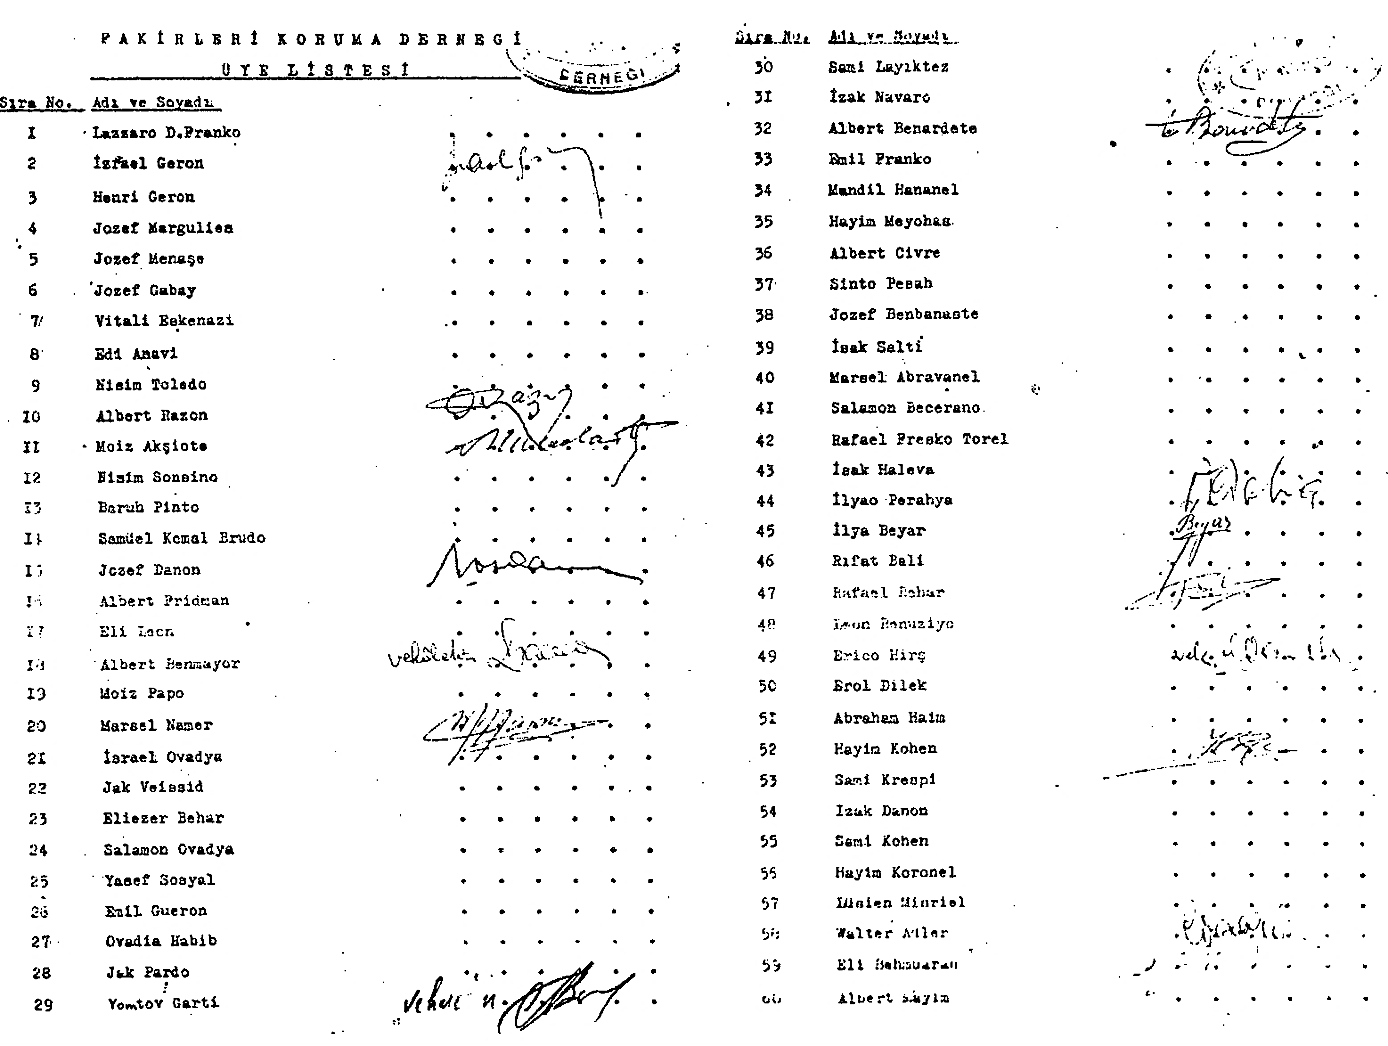 FAKİRLERİ KORUMA DERNEGİ
ÜYE LİSTESİ
DERNEĞİ
Sıra No. Adı ve Soyadı
I Lazzaro D.Franko
2 İzrael Geron
3 Henri Geron
4 Jozef Margulies
5 Jozef Menaşe
6 Jozef Gabay
7 Vitali Eskenazi
8 Edi Anavi
9 Nisim Toledo
IO Albert Razon
II Moiz Akşiote
I2 Nisim Sonsino
I3 Baruh Pinto
I4 Samüel Kemal Brudo
I5 Jozef Danon
I6 Albert Fridman
I7 Eli Leon
I8 Albert Benmayor
vekâleten
I9 Moiz Papo
20 Marsel Namer
2I İsrael Ovadya
22 Jak Veissid
23 Eliezer Behar
24 Salamon Ovadya
25 Yasef Sosyal
26 Emil Gueron
27 Ovadia Habib
28 Jak Pardo
29 Yomtov Garti
Sıra No. Adı ve Soyadı
30 Sami Layıktez
3I İzak Navaro
32 Albert Benardete
33 Emil Franko
34 Mandil Hananel
35 Hayim Meyohas
36 Albert Civre
37 Sinto Pesah
38 Jozef Benbanaste
39 İsak Salti
40 Marsel Abravanel
4I Salamon Becerano
42 Rafael Fresko Torel
43 İsak Haleva
44 İlyao Perahya
45 İlya Beyar
Beyar
46 Rıfat Bali
47 Rafael Behar
48 Leon Benuziyo
49 Erico Hirş
50 Erol Dilek
5I Abraham Haim
52 Hayim Kohen
53 Sami Krespi
54 Izak Danon
55 Sami Kohen
56 Hayim Koronel
57 Lüsien Minriel
58 Walter Adler
59 Eli
60 Albert Hayim